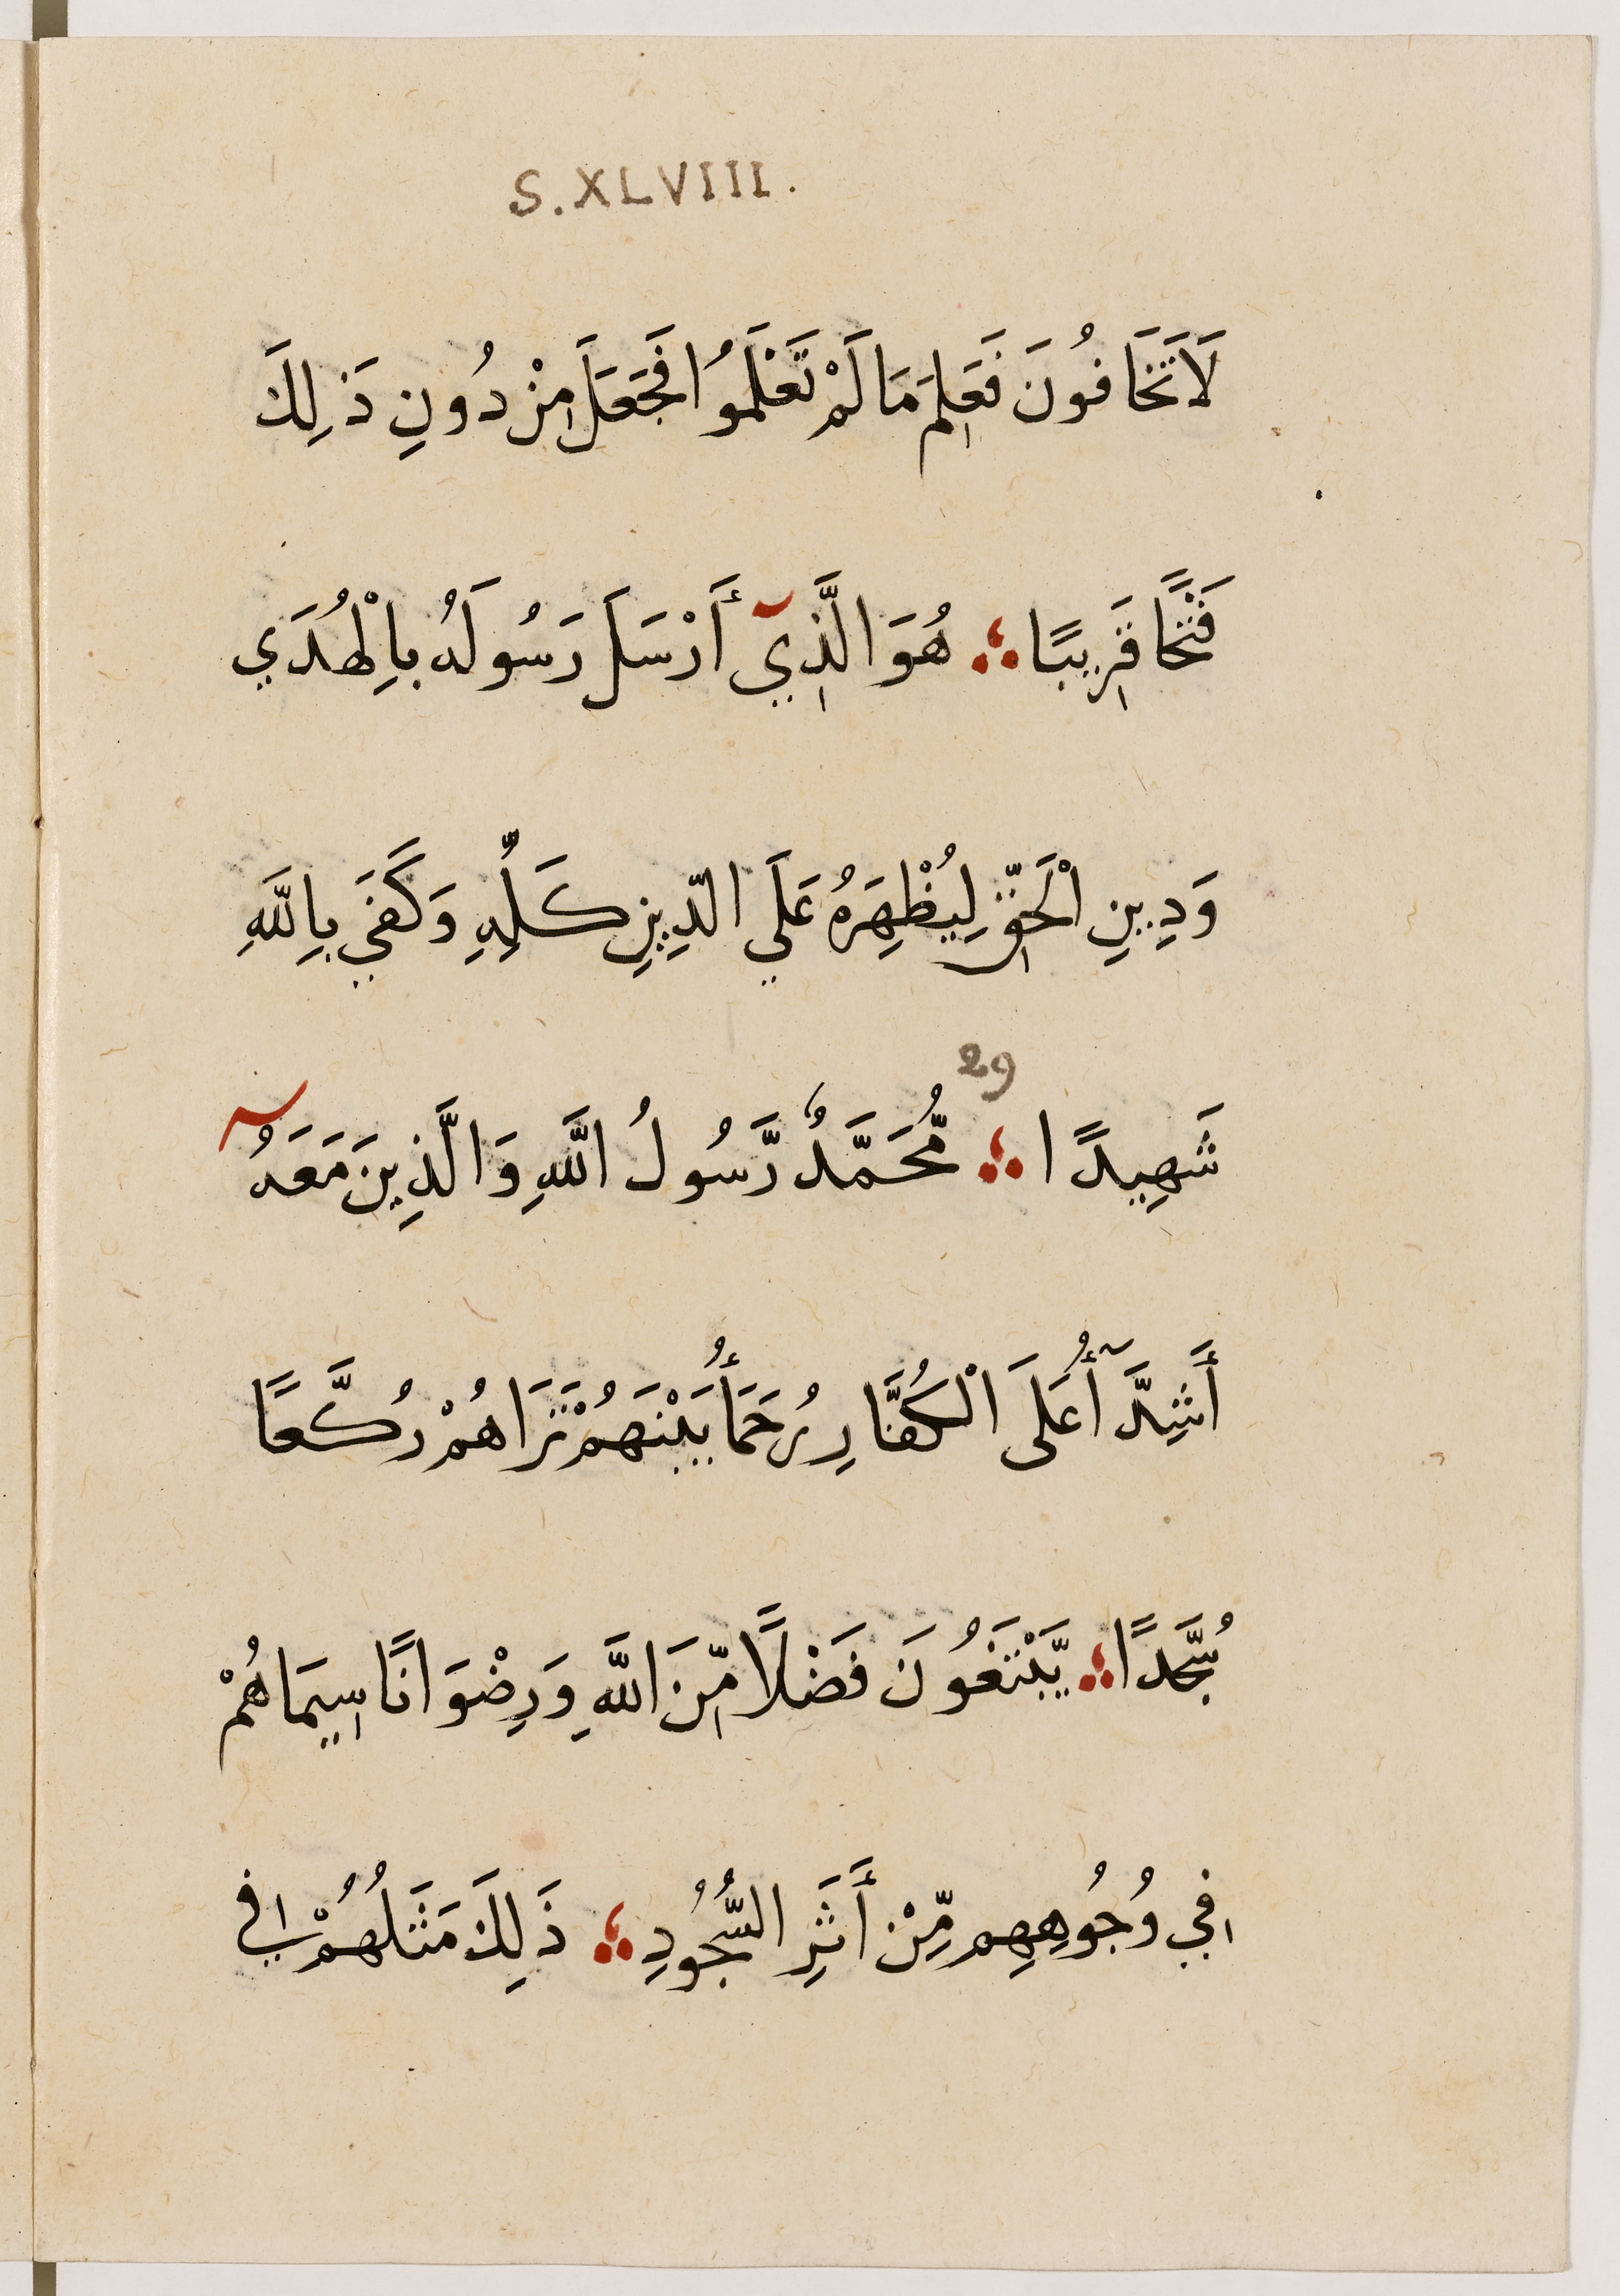 S.XLVIII.
لَا تَخَافُونَ فَعَلِمَ مَا لَمْ تَعْلَمُوا فَجَعَلَ مِنْ دُونِ ذَلِكَ
فَتْحًا قَرِيبًا ؛ هُوَ الَّذِيٓ أَرْسَلَ رَسُولَهُ بِالْهُدَي
وَدِينِ الْحَقِّ لِيُظْهِرَهُ عَلَي الدِّينِ كُلِّهِ وَكَفَي بِاللَّهِ
29
شَهِيدًا ؛ مُّحَمَّدٌ رَّسُولُ اللَّهِ وَالَّذِينَ مَعَهُٓ
أَشِدَّآأُ عَلَى الْكُفَّارِ رُحَمَأُ بَيْنَهُمْ تَرَاهُمْ رُكَّعًا
سُجَّدًا ؛ يَّبْتَغُونَ فَضْلًا مِّنَ اللَّهِ وَرِضْوَانًا سِيمَاهُمْ
فِي وُجُوهِهِم مِّنْ أَثَرِ السُّجُودِ ؛ ذَلِكَ مَثَلُهُمْ فِي